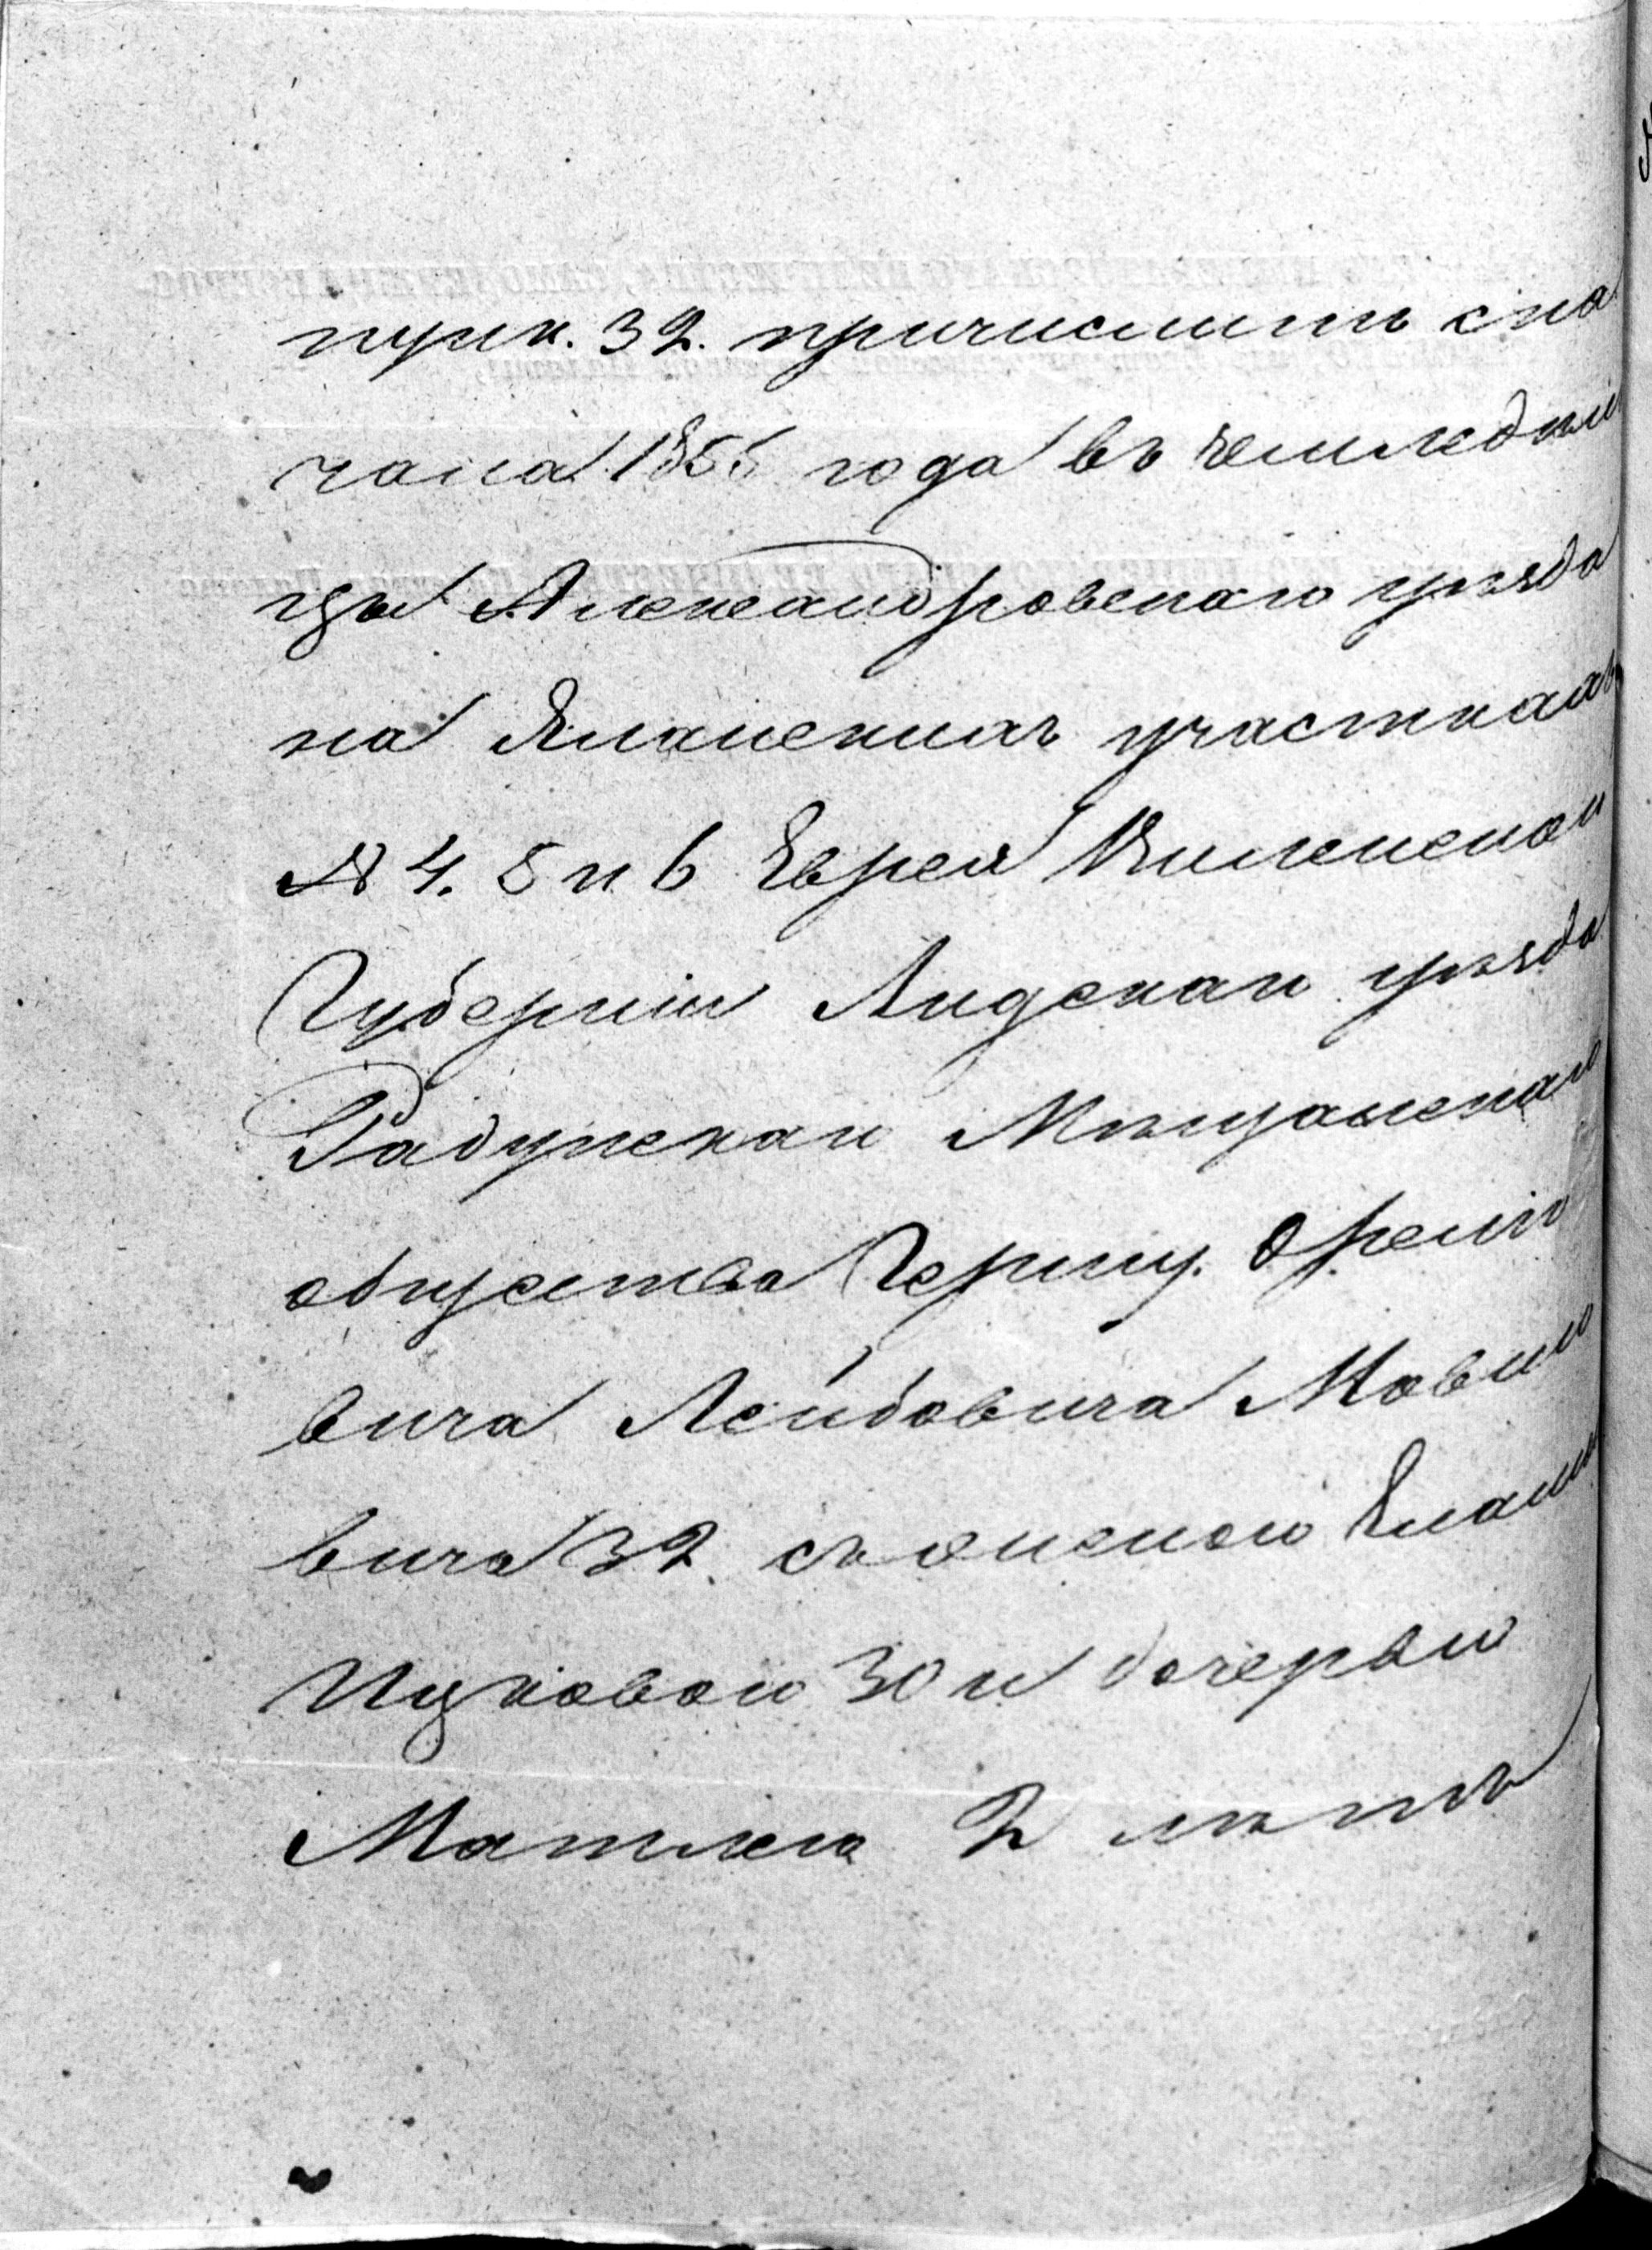 пунк. 32. причислить сна
чала 1855 года въ земледѣль
цы Александровскаго уѣзда
на участкахъ
№ 4. 5 и 6 Еврея Виленской
Губерніи Лидскаго уѣзда
Радунскаго Мѣщанскаго
общества Гершу. Орелио
вича Лейбовича Мовшо
вича 32 съ женою
Ицковою 30 и дочерью
Матлею 2 лѣтъ